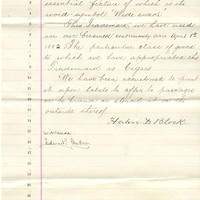 essential feature of which is the
word symbol "Wide awake"
This Trademark we have used
in our business continuously since April 1st
1882. The particular class of goods
to which we have appropriated this
Trademark is Cigars
We have been accustomed to print
it upon labels to affix to packages
or to brand or stencil it on the
outside thereof
D. Block
Witnesses